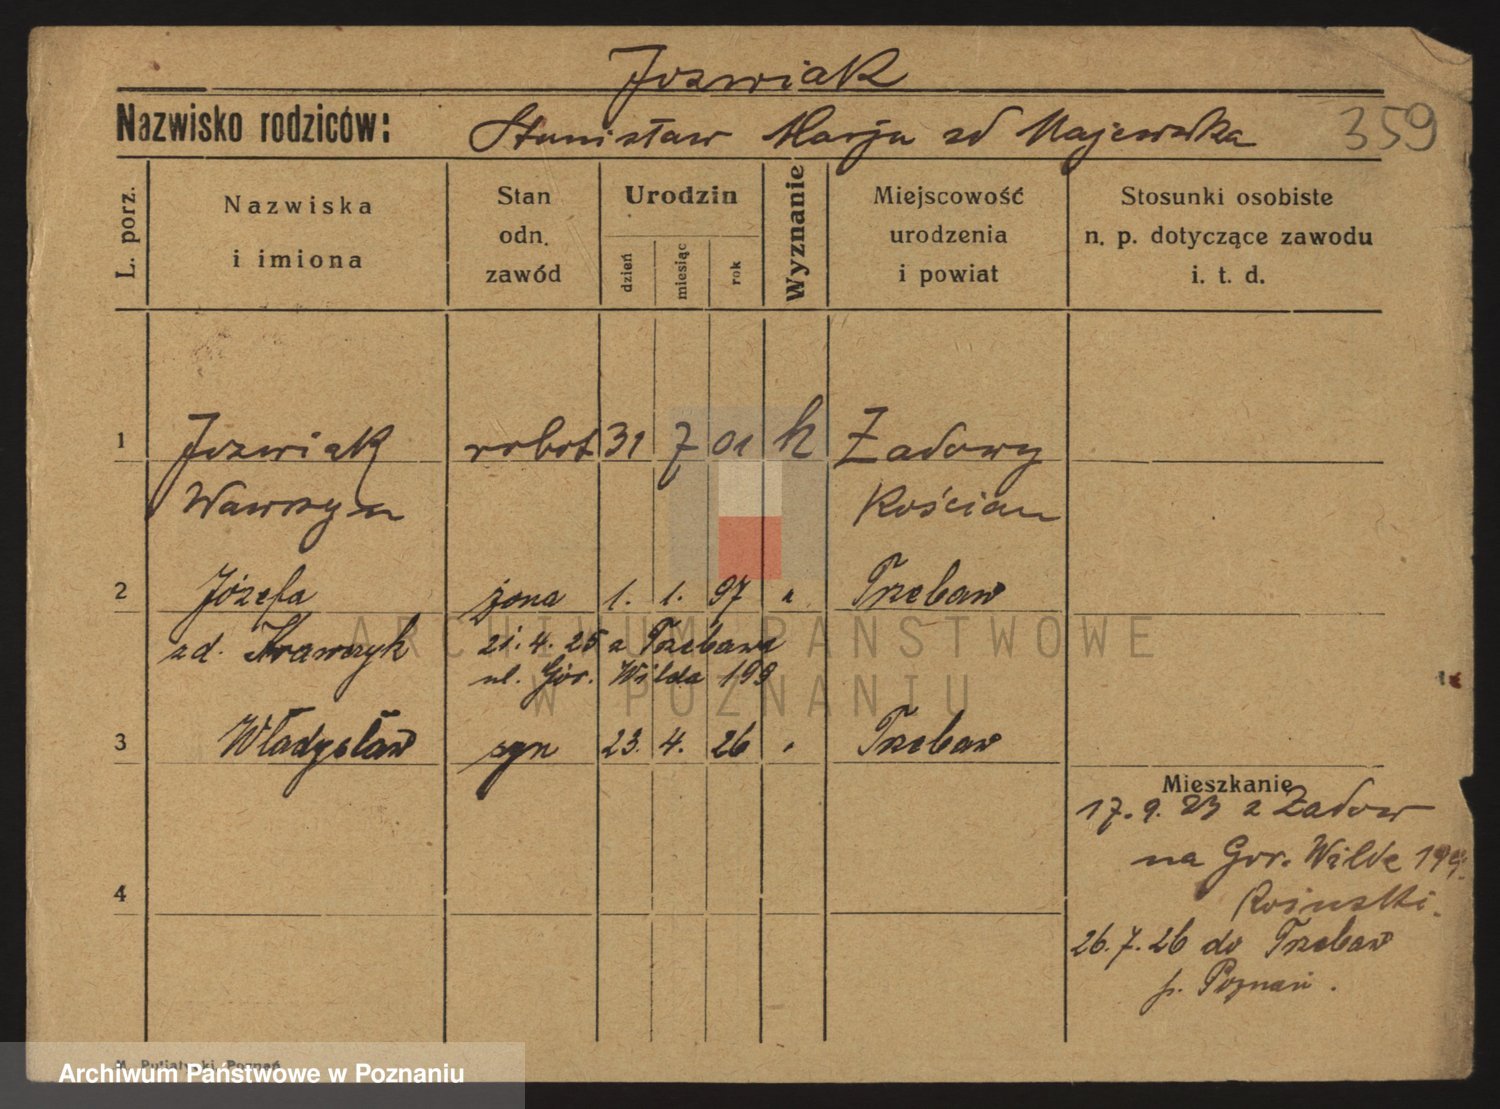 Jozwiak
Nazwisko rodziców: Stanisław Marja zd Majewska 359
L. porz.
Nazwiska i imiona
Stan odn. zawód
Urodzin
dzień miesiąc rok
Wyznanie
Miejscowość urodzenia i powiat
Stosunki osobiste n. p. dotyczące zawodu i. t. d.
1 Jozwiak robot 31 7 01 k Zadowy
Wawrzyn Kościan
2 Józefa żona 1. 1. 97 " Trzebaw
zd. Krawczyk 21. 4. 25 z Trzebawa
ul. Gór. Wilda 199
3 Władysław syn 23. 4. 26 " Trzebaw
Mieszkanie
17. 9. 23 z Zadow
na Gor. Wilde 199
4
Rosinski.
26. 7. 26 do Trzebaw
p. Poznań.
ARCHIWUM PAŃSTWOWE
W POZNANIU
Archiwum Państwowe w Poznaniu